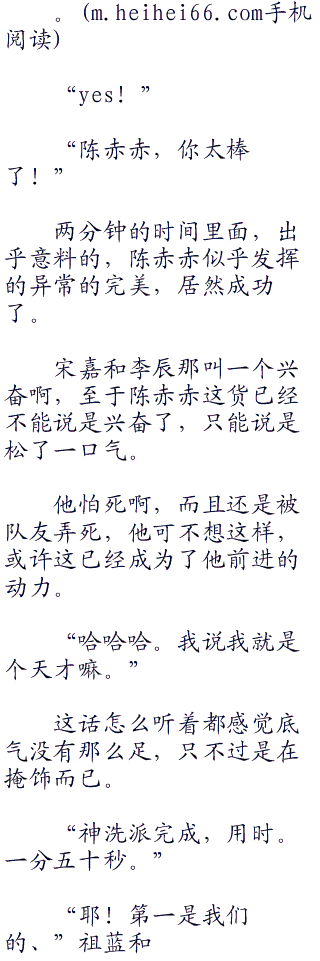 。(m.heihei66.com手机
阅读)
“yes！”
“陈赤赤，你太棒
了！”
两分钟的时间里面，出
乎意料的，陈赤赤似乎发挥
的异常的完美，居然成功
了。
宋嘉和李辰那叫一个兴
奋啊，至于陈赤赤这货已经
不能说是兴奋了，只能说是
松了一口气。
他怕死啊，而且还是被
队友弄死，他可不想这样，
或许这已经成为了他前进的
动力。
“哈哈哈。我说我就是
个天才嘛。”
这话怎么听着都感觉底
气没有那么足，只不过是在
掩饰而已。
“神洗派完成，用时。
一分五十秒。”
“耶！第一是我们
的、”祖蓝和